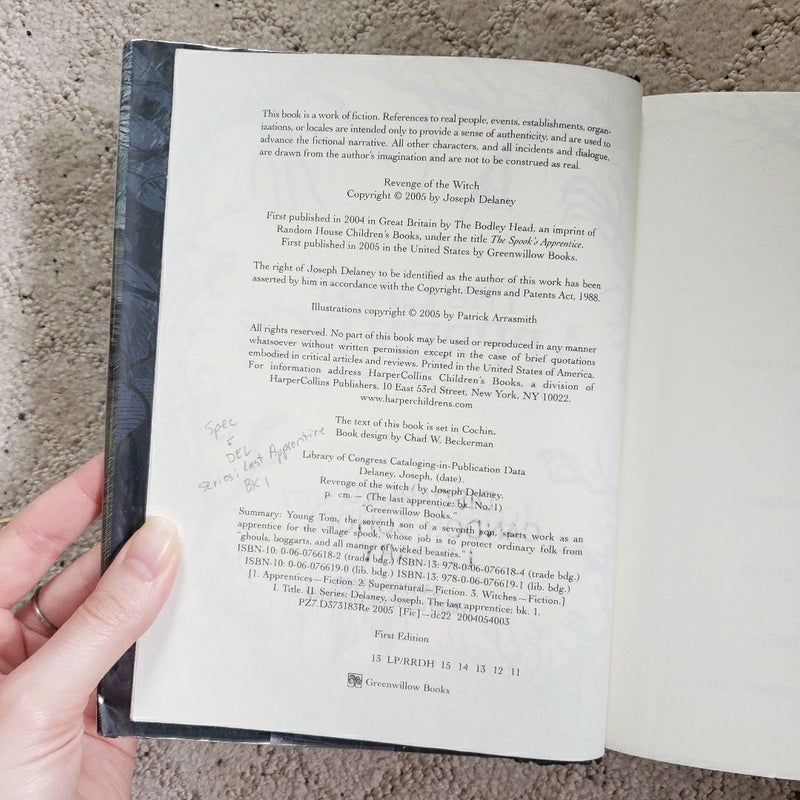 This book is a work of fiction. References to real people, events, establishments, organ-
izations, or locales are intended only to provide a sense of authenticity, and are used to
advance the fictional narrative. All other characters, and all incidents and dialogue,
are drawn from the author's imagination and are not to be construed as real.
Revenge of the Witch
Copyright © 2005 by Joseph Delaney
First published in 2004 in Great Britain by The Bodley Head, an imprint of
Random House Children's Books, under the title The Spook's Apprentice.
First published in 2005 in the United States by Greenwillow Books.
The right of Joseph Delaney to be identified as the author of this work has been
asserted by him in accordance with the Copyright, Designs and Patents Act, 1988.
Illustrations copyright © 2005 by Patrick Arrasmith
All rights reserved. No part of this book may be used or reproduced in any manner
whatsoever without written permission except in the case of brief quotations
embodied in critical articles and reviews. Printed in the United States of America.
For information address HarperCollins Children's Books, a division of
HarperCollins Publishers, 10 East 53rd Street, New York, NY 10022.
www.harperchildrens.com
Spec
E
DEL
Series: Last Apprentire
BK 1
The text of this book is set in Cochin.
Book design by Chad W. Beckerman
Library of Congress Cataloging-in-Publication Data
Delaney, Joseph, (date).
Revenge of the witch / by Joseph Delaney.
p. cm.— (The last apprentice; bk. No. 1)
"Greenwillow Books."
Summary: Young Tom, the seventh son of a seventh son, starts work as an
apprentice for the village spook, whose job is to protect ordinary folk from
"ghouls, boggarts, and all manner of wicked beasties."
ISBN-10: 0-06-076618-2 (trade bdg.) ISBN-13: 978-0-06-076618-4 (trade bdg.)
ISBN-10: 0-06-076619-0 (lib. bdg.) ISBN-13: 978-0-06-076619-1 (lib. bdg.)
[1. Apprentices—Fiction. 2. Supernatural—Fiction. 3. Witches—Fiction.]
I. Title. II. Series: Delaney, Joseph. The last apprentice; bk. 1.
PZ7.D373183Re 2005 [Fic]—dc22 2004054003
First Edition
13 LP/RRDH 15 14 13 12 11
Greenwillow Books